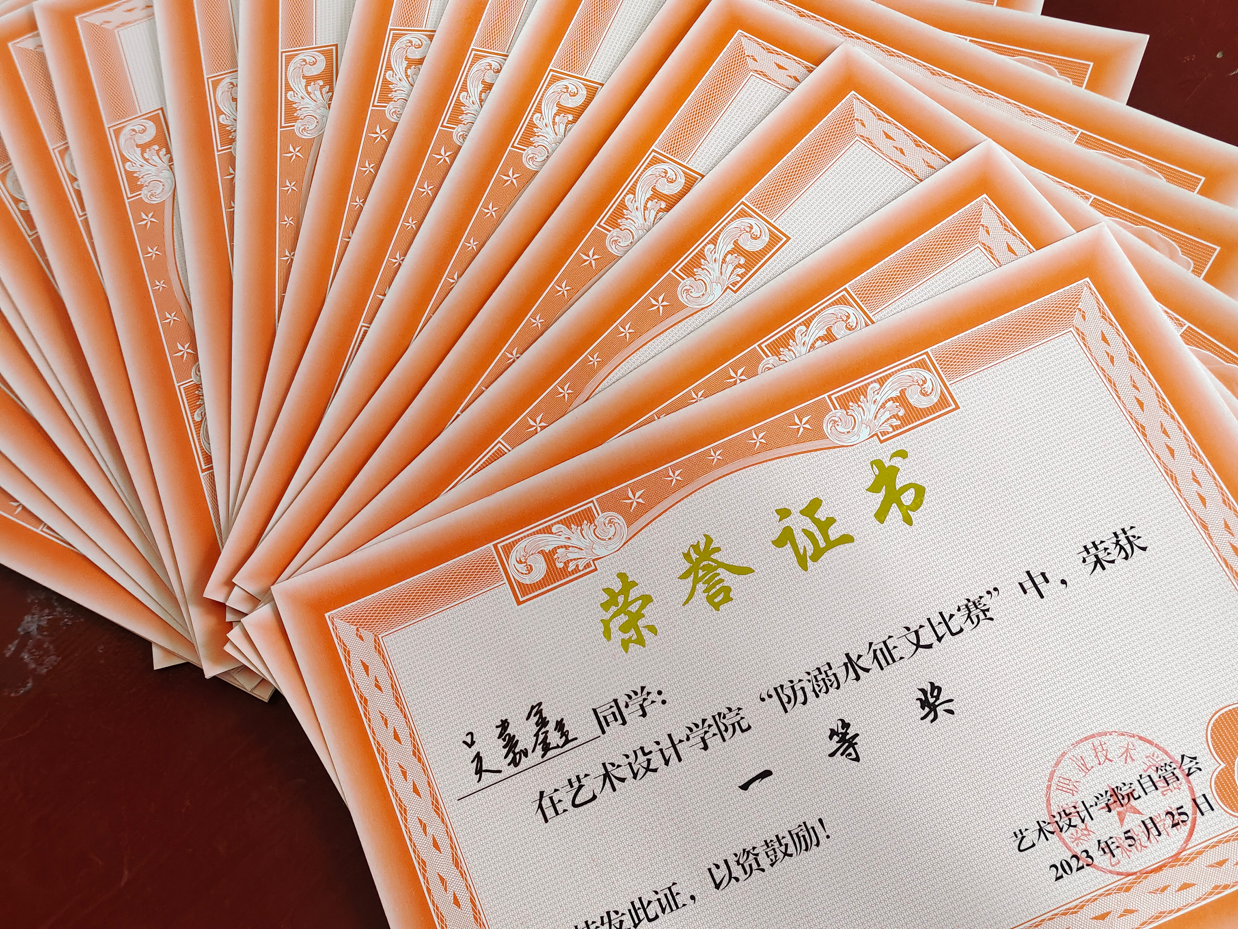 荣誉证书
吴嘉鑫同学：
在艺术设计学院“防溺水征文比赛”中，荣获
一等奖
特发此证，以资鼓励！
艺术设计学院自管会
2023年5月25日
职业技术学